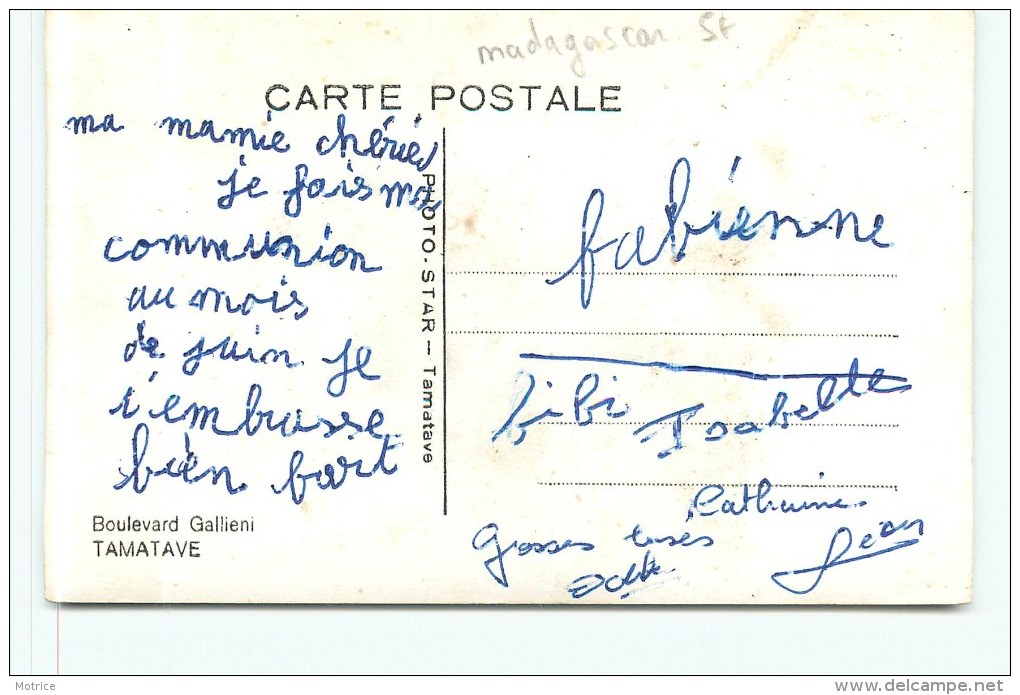 madagascar 5f
CARTE POSTALE
ma mamie chérie
je fais ma
communion
au mois
de juin je
t'embrasse
bien fort
Boulevard Gallieni
TAMATAVE
PHOTO-STAR - Tamatave
fabiénne
bibi Isabelle
Catherine
Grosses bises
© Motrice
www.delcampe.net